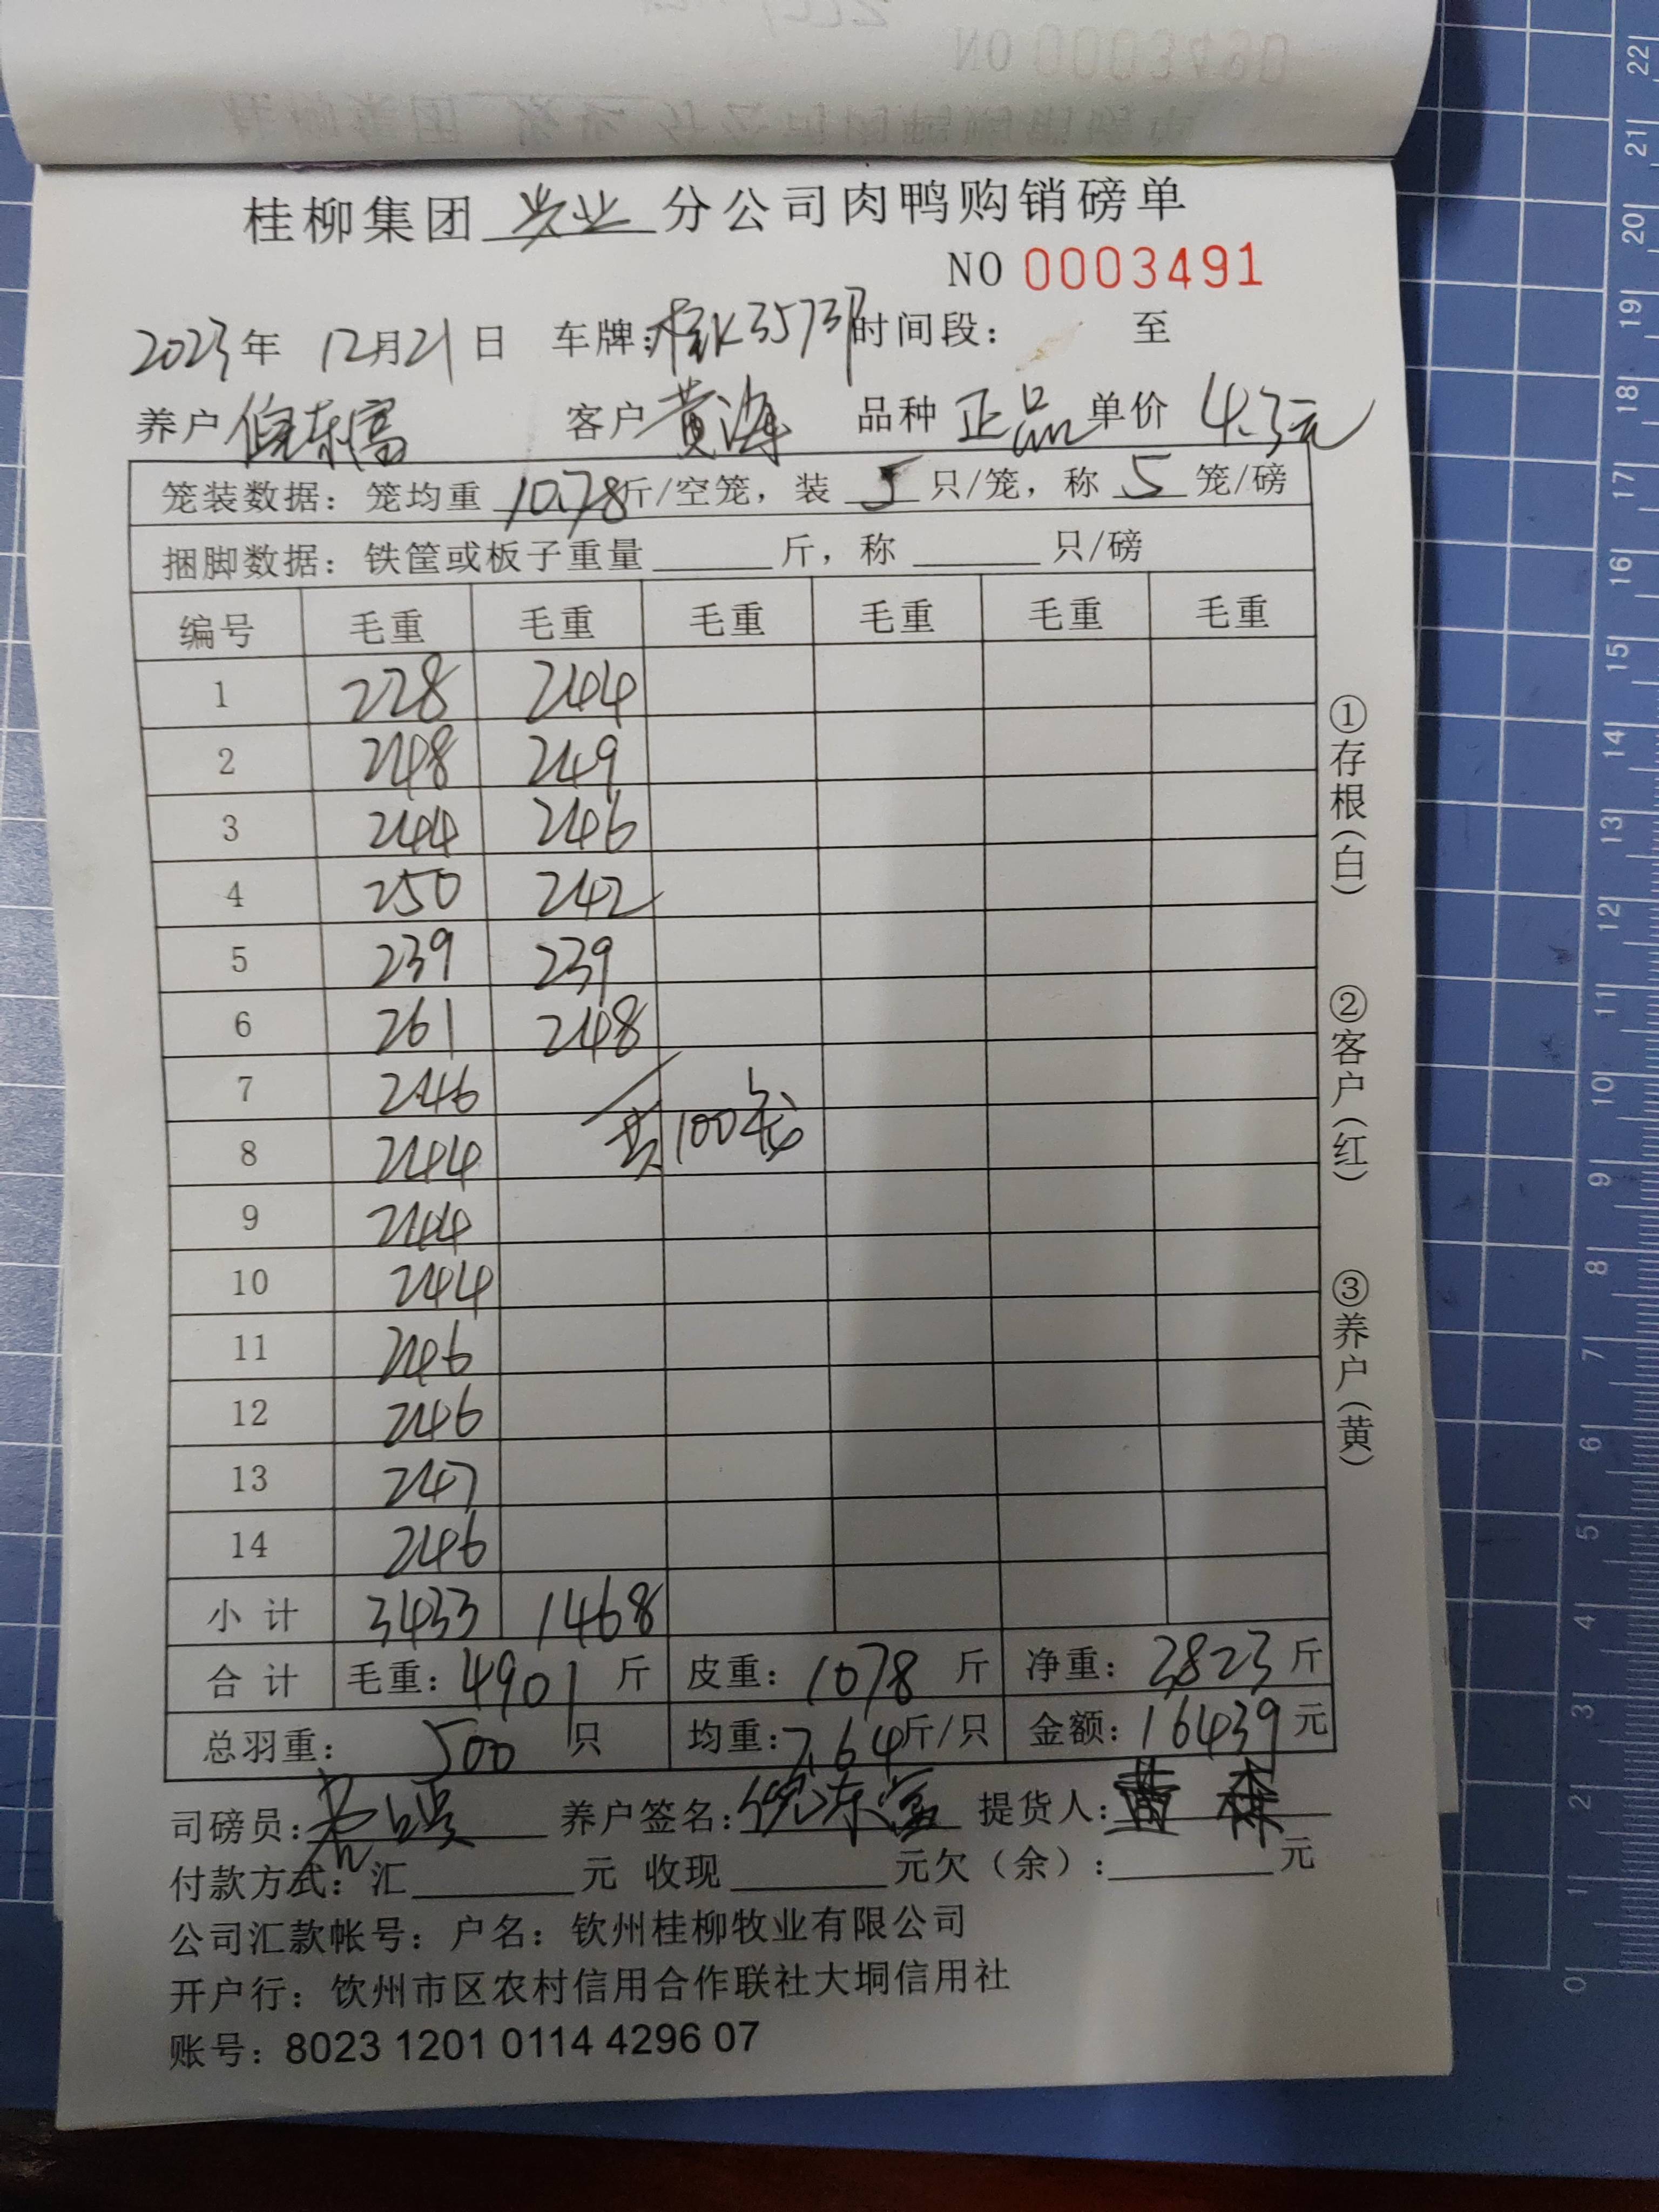 NO 0003490
桂柳集团 兴业 分公司肉鸭购销磅单
NO 0003491
2023年 12月21日 车牌：桂K3573 时间段： 至
养户 倪东富 客户 黄海 品种 正品 单价 4.3元
笼装数据：笼均重 10.78 斤/空笼，装 5 只/笼，称 5 笼/磅
捆脚数据：铁筐或板子重量 斤，称 只/磅
编号 毛重 毛重 毛重 毛重 毛重 毛重
1 228 244
2 248 249
3 244 246
4 250 242
5 239 239
6 261 248
7 246
8 244 共100笼
9 244
10 244
11 246
12 246
13 247
14 246
小计 3433 1468
合计 毛重：4901 斤 皮重：1078 斤 净重：3823 斤
总羽重： 500 只 均重：7.64 斤/只 金额：16439 元
司磅员： 养户签名：倪东富 提货人：黄
付款方式：汇 元 收现 元欠（余）： 元
公司汇款帐号：户名：钦州桂柳牧业有限公司
开户行：饮州市区农村信用合作联社大垌信用社
账号：8023 1201 0114 4296 07
①存根（白） ②客户（红） ③养户（黄）